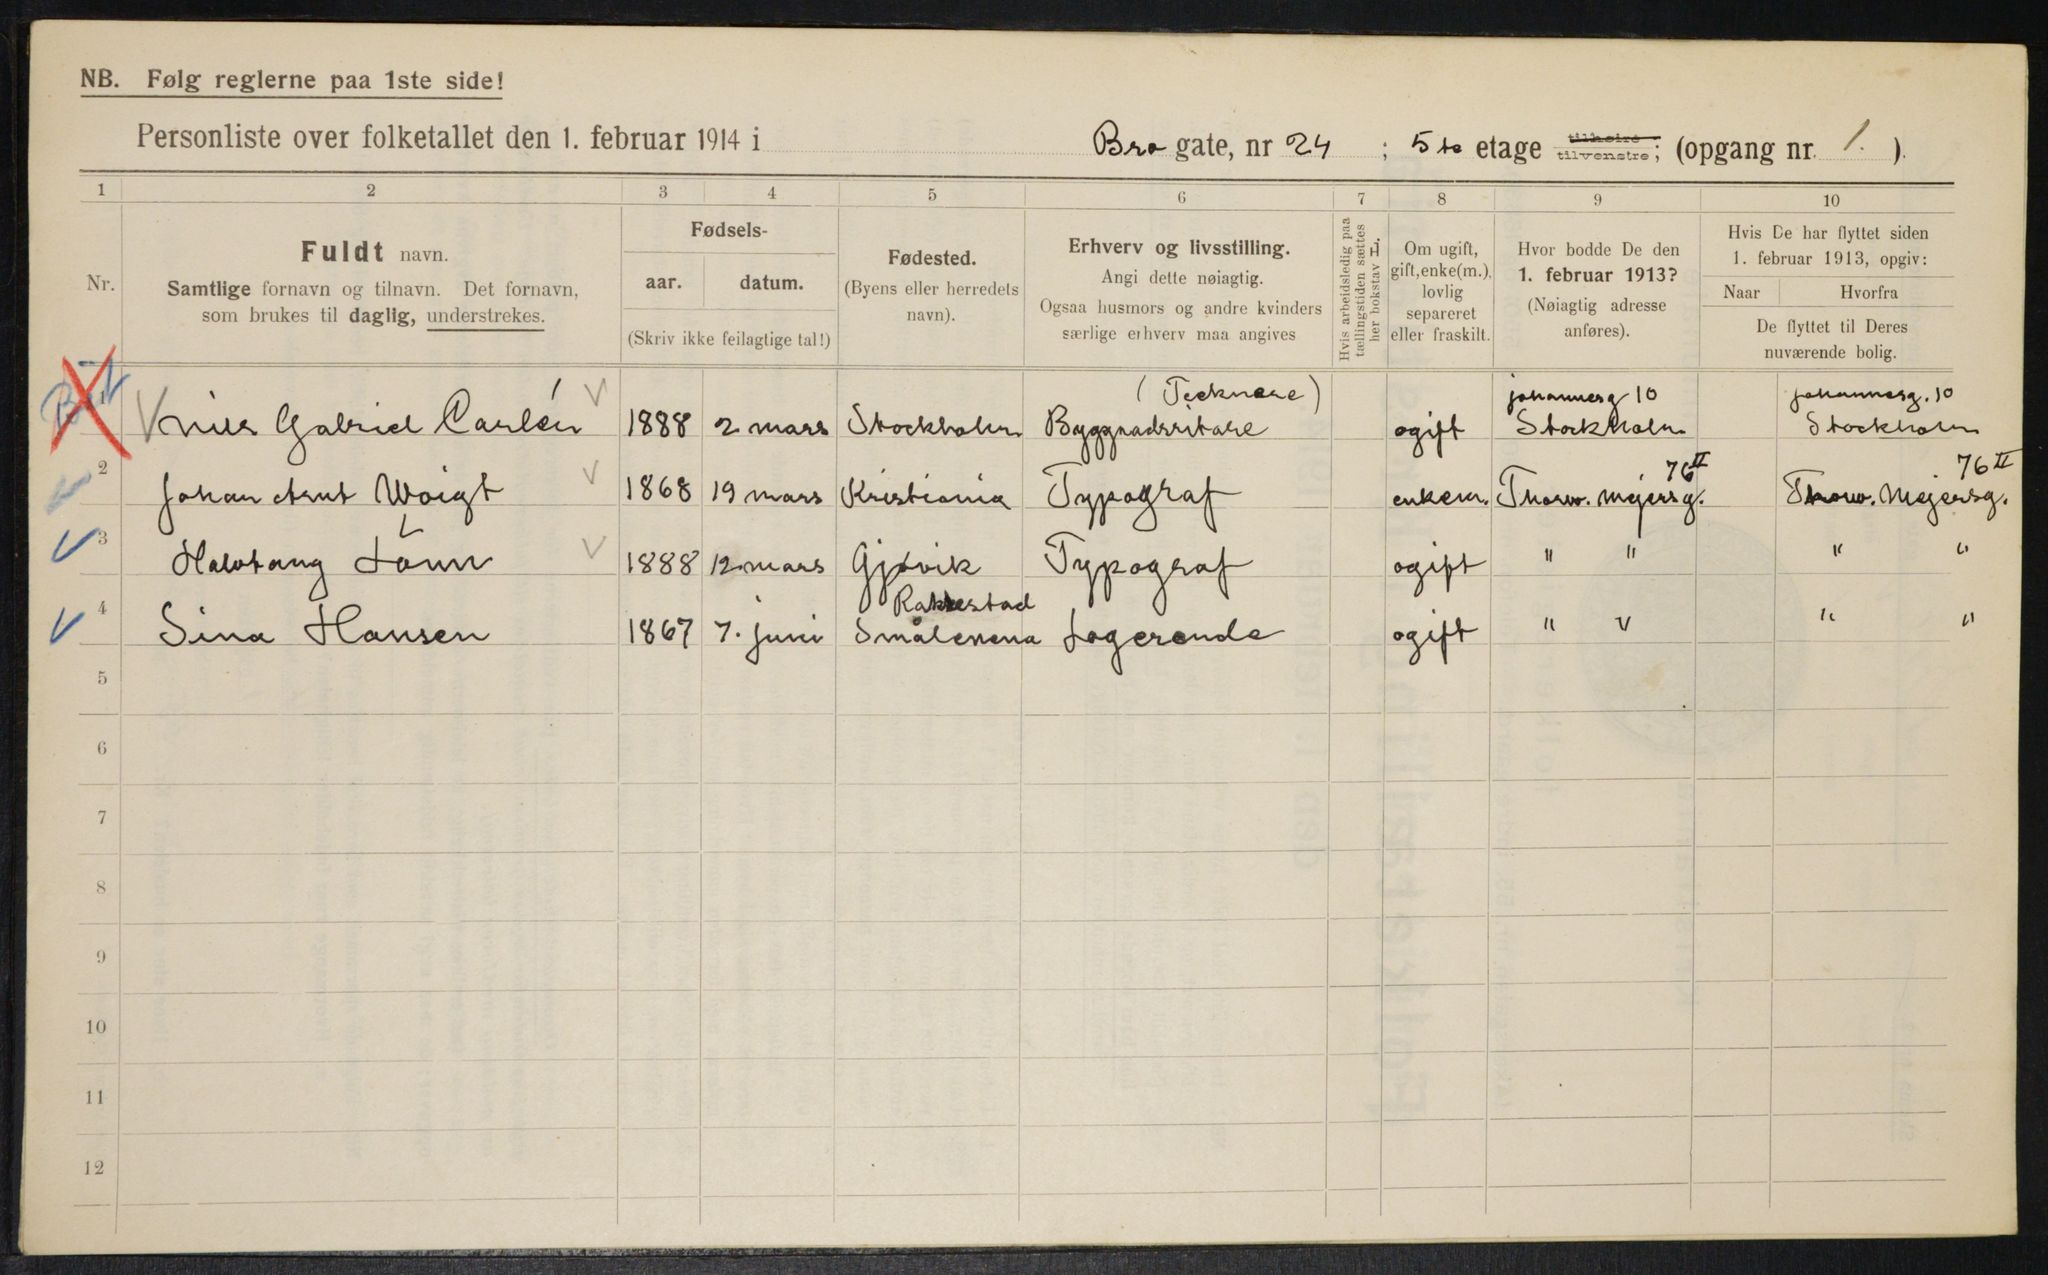 NB. Følg reglerne paa 1ste side!
Personliste over folketallet den 1. februar 1914 i Bro gate, nr 24 ; 5te etage tilhøire tilvenstre; (opgang nr. 1. ).
1 2 3 4 5 6 7 8 9 10
Nr.
Fuldt navn.
Samtlige fornavn og tilnavn. Det fornavn,
som brukes til daglig, understrekes.
Fødsels-
aar. datum.
(Skriv ikke feilagtige tal!)
Fødested.
(Byens eller herredets
navn).
Erhverv og livsstilling.
Angi dette nøiagtig.
Ogsaa husmors og andre kvinders
særlige erhverv maa angives
Hvis arbeidsledig paa
tællingstiden sættes
her bokstav L.
Om ugift,
gift, enke(m.),
lovlig
separeret
eller fraskilt.
Hvor bodde De den
1. februar 1913?
(Nøiagtig adresse
anføres).
Hvis De har flyttet siden
1. februar 1913, opgiv:
Naar Hvorfra
De flyttet til Deres
nuværende bolig.
(Tecknare) johannesg 10 johannesg. 10
1 Nils Gabriel Carlén 1888 2 mars Stockholm Byggnadsritare ogift Stockholm Stockholm
76 II 76 II
2 Johan Arnt Woigt 1868 19 mars Kristiania Typograf enkem. Thorw. Mejersg. Thorw. Mejersg.
3 Lönn 1888 12 mars Gjøvik Typograf ogift " " " "
Rakkestad
4 Sina Hansen 1867 7. juni Smålenena Logerende ogift " " " "
5
6
7
8
9
10
11
12